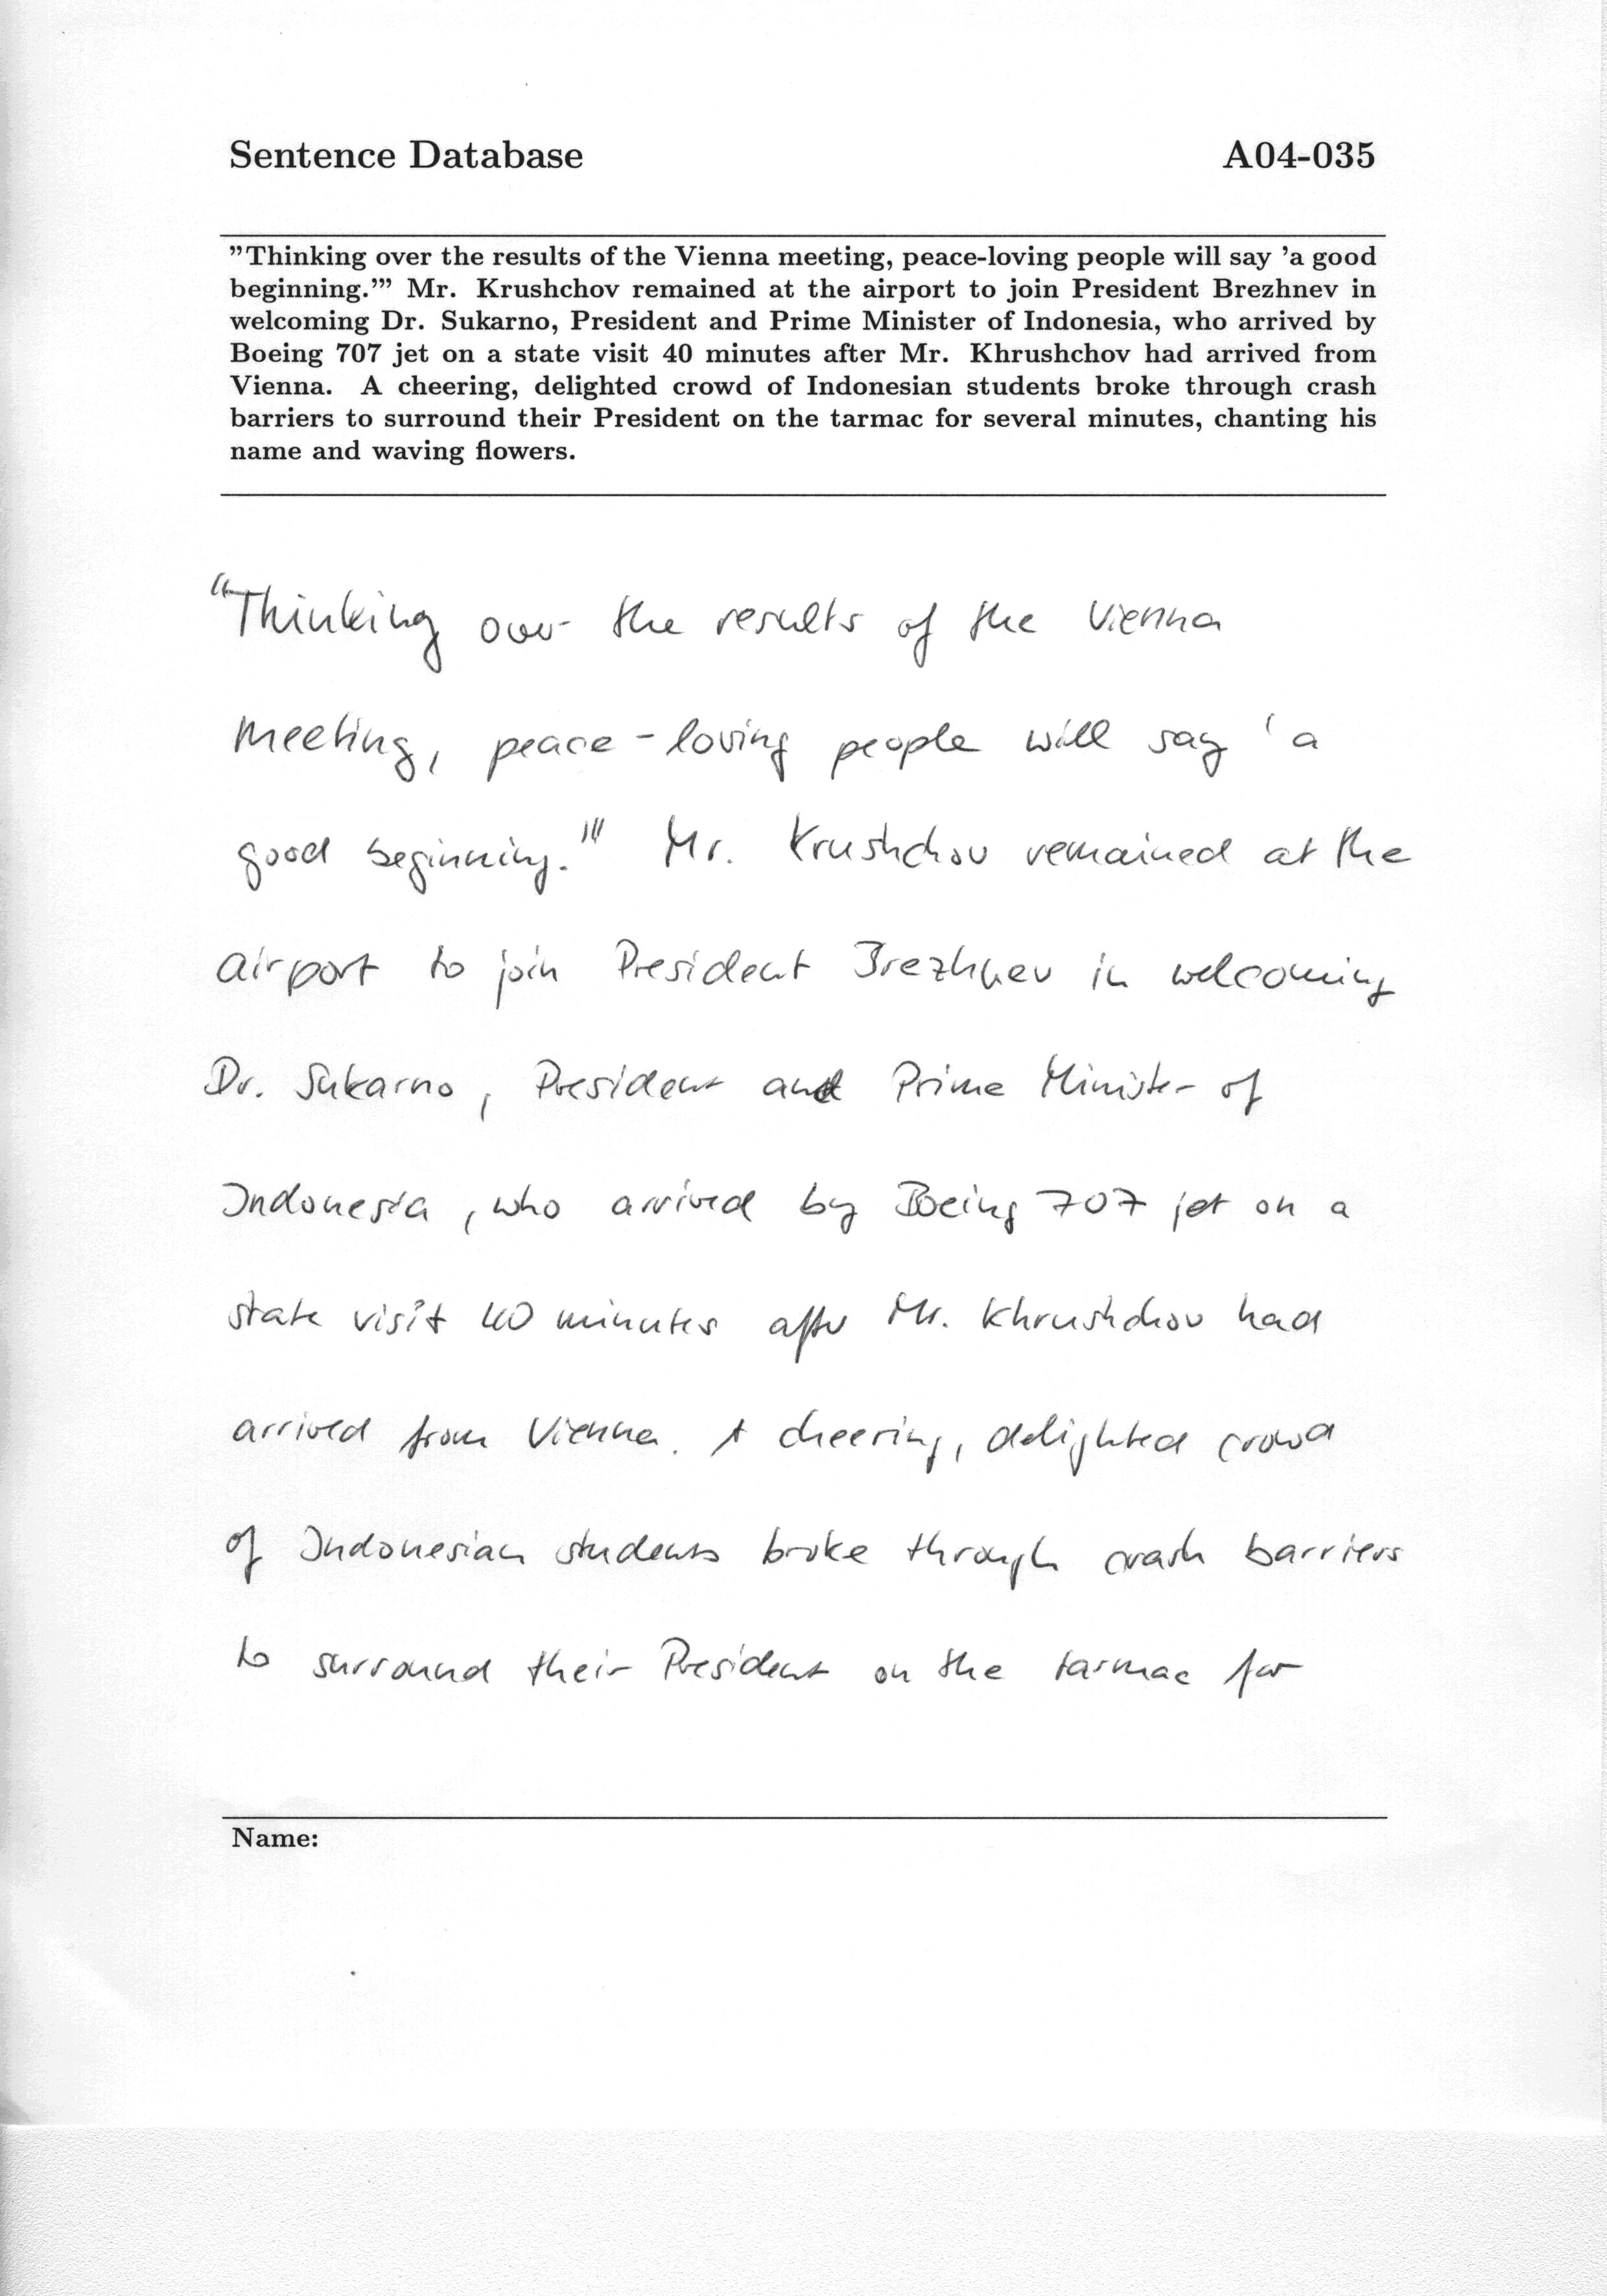 Sentence Database A04-035
"Thinking over the results of the Vienna meeting, peace-loving people will say 'a good
beginning.'" Mr. Krushchov remained at the airport to join President Brezhnev in
welcoming Dr. Sukarno, President and Prime Minister of Indonesia, who arrived by
Boeing 707 jet on a state visit 40 minutes after Mr. Khrushchov had arrived from
Vienna. A cheering, delighted crowd of Indonesian students broke through crash
barriers to surround their President on the tarmac for several minutes, chanting his
name and waving flowers.
"Thinking over the results of the Vienna
meeting, peace-loving people will say 'a
good beginning.'" Mr. Krushchov remained at the
airport to join President Brezhnev in welcoming
Dr. Sukarno, President and Prime Minister of
Indonesia, who arrived by Boeing 707 jet on a
state visit 40 minutes after Mr. Khrushchov had
arrived from Vienna. A cheering, delighted crowd
of Indonesian students broke through crash barriers
to surround their President on the tarmac for
Name: